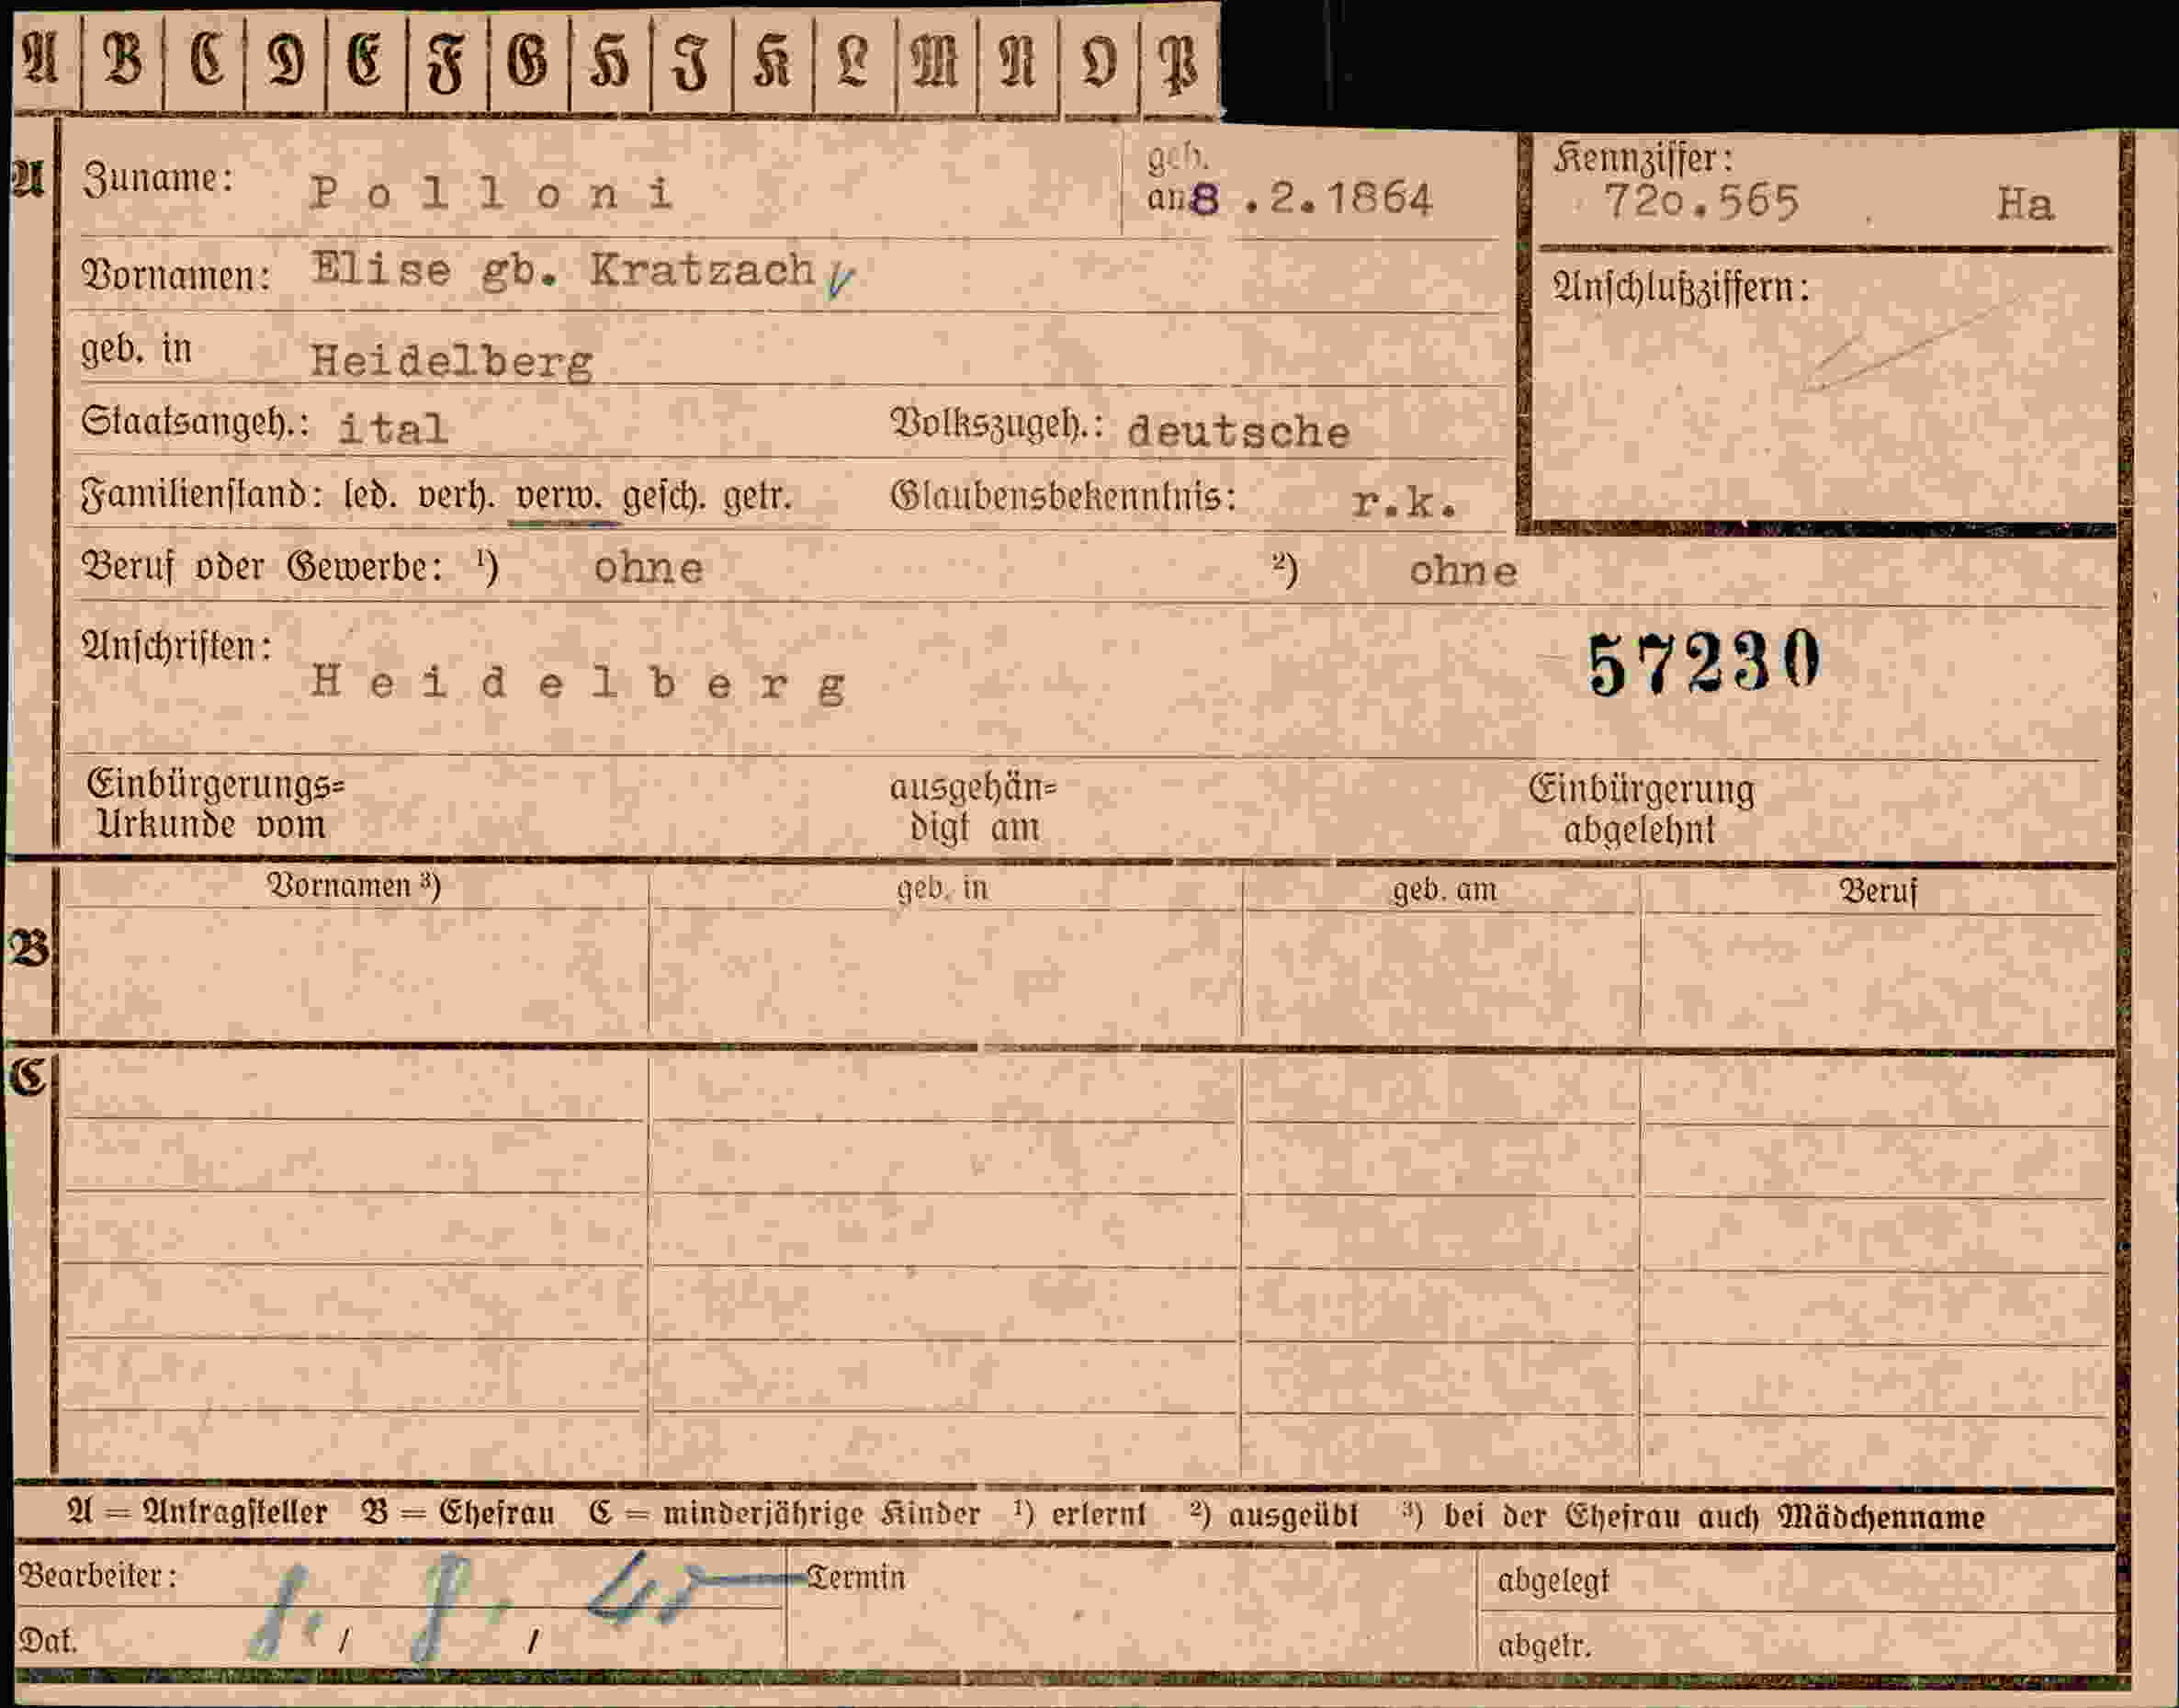 A B C D E F G H I K L M N O P
A Zuname: Polloni geb. am 8.2.1864 Kennziffer: 720.565 Ha
Vornamen: Elise gb. Kratzach
Anschlußziffern:
geb. in Heidelberg
Staatsangeh.: ital Volkszugeh.: deutsche
Familienstand: led. verh. verw. gesch. getr. Glaubensbekenntnis: r.k.
Beruf oder Gewerbe: ¹) ohne ²) ohne
Anschriften: Heidelberg 57230
Einbürgerungs= ausgehän= Einbürgerung
Urkunde vom digt am abgelehnt
Vornamen ³) geb. in geb. am Beruf
B
C
A = Antragsteller B = Ehefrau C = minderjährige Kinder ¹) erlernt ²) ausgeübt ³) bei der Ehefrau auch Mädchenname
Bearbeiter: Termin abgelegt
Dat. / / abgetr.